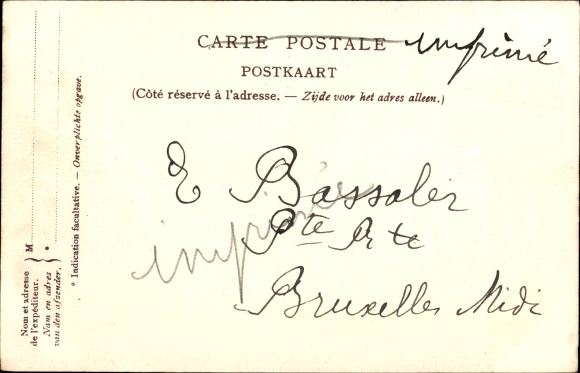 CARTE POSTALE imprimé
POSTKAART
(Côté réservé à l'adresse. — Zijde voor het adres alleen.)
E Bassaler
imprimé
Pte Rte
Bruxelles Midi
Nom et adresse
de l'expéditeur.
Nom en adres
van den afzender.
M
*
* Indication facultative. — Onverplichte opgave.